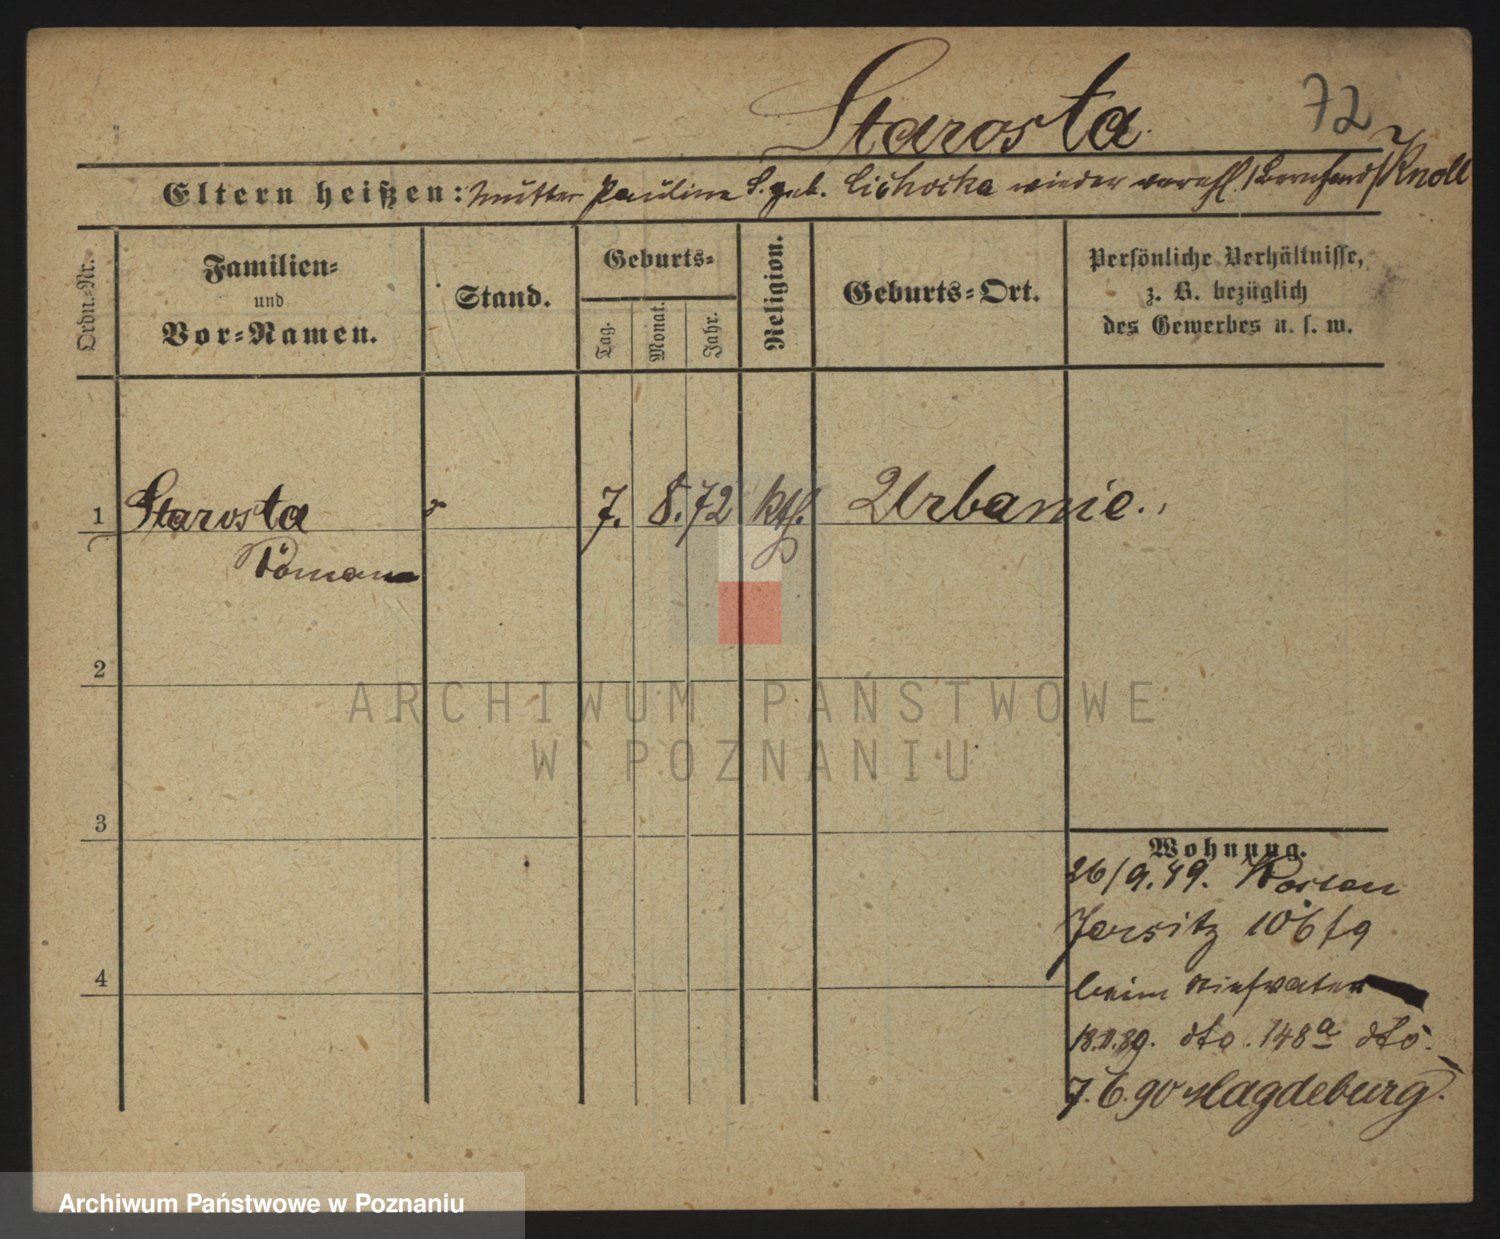 Starosta 72
Eltern heißen: Mutter Paulina S. geb. Cichocka wieder verehl. (Bernhard) Knoll
Ordn.-Nr.
Familien-
und
Vor-Namen.
Stand.
Geburts-
Tag.
Monat.
Jahr.
Religion.
Geburts-Ort.
Persönliche Verhältnisse,
z. B. bezüglich
des Gewerbes u. s. w.
1 Starosta 7. 8. 72 kth. Urbanie
Roman
2
3
4
Wohnung.
26/9.89. Posten
Jersitz 106/9
beim Stiefvater
18.11.89. dto. 148a dto.
7.6.90 Magdeburg.
ARCHIWUM PAŃSTWOWE
W POZNANIU
Archiwum Państwowe w Poznaniu